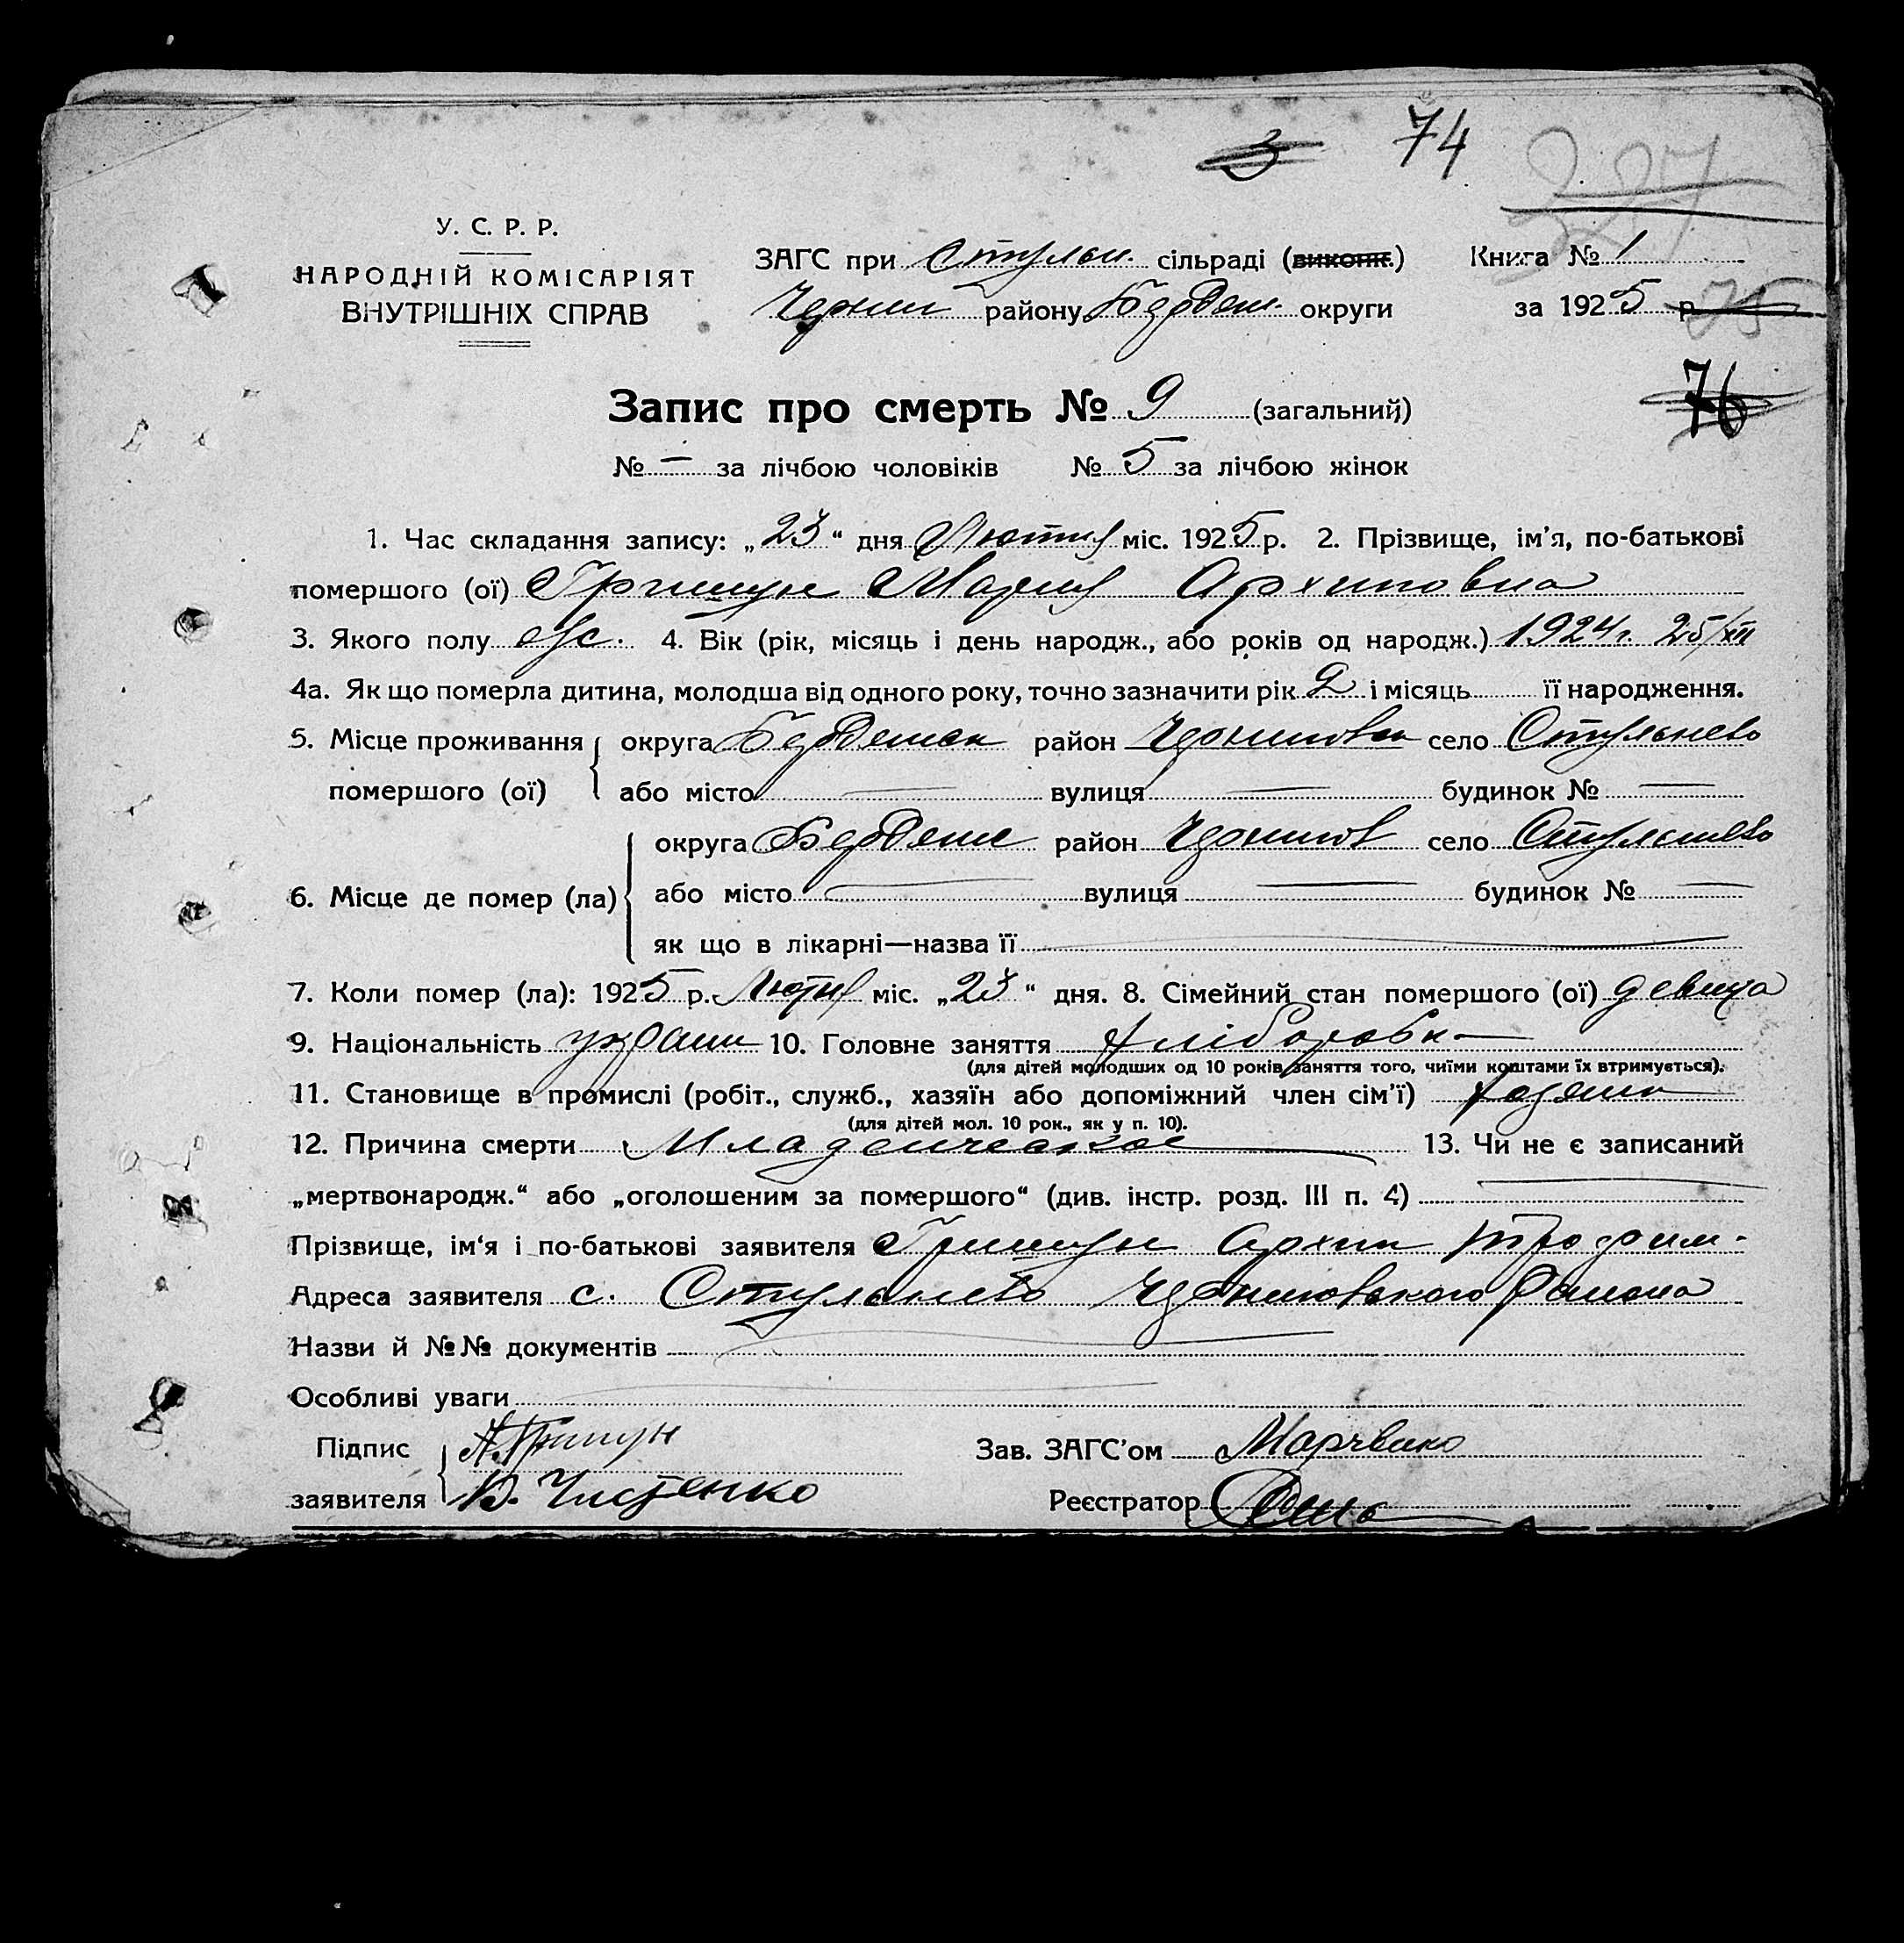 3 74 327
327
У. С. Р. Р.
НАРОДНІЙ КОМІСАРІЯТ
ВНУТРІШНІХ СПРАВ
ЗАГС при Стульн. сільраді (виконк.) Книга № 1
Черниг району Бердян. округи за 1925 р. 75
76
Запис про смерть № 9 (загальний)
№ — за лічбою чоловіків № 5 за лічбою жінок
1. Час складання запису: „23“ дня Лютня міс. 1925 р. 2. Прізвище, ім’я, по-батькові
помершого (ої) Гришун Мария Архиповна
3. Якого полу ж. 4. Вік (рік, місяць і день народж., або років од народж.) 1924 г. 25/XII
4а. Як що померла дитина, молодша від одного року, точно зазначити рік 2 і місяць її народження.
5. Місце проживання округа Бердянск район село Стульнево
помершого (ої) або місто — вулиця — будинок № —
округа Бердянс район Чернигов село Стульнево
6. Місце де помер (ла) або місто — вулиця — будинок № —
як що в лікарні—назва її —
7. Коли помер (ла): 1925 р. Лютня міс. „23“ дня. 8. Сімейний стан помершого (ої) девица
9. Національність украин 10. Головне заняття Хліборобн
(для дітей молодших од 10 років заняття того, чиїми коштами їх втримується).
11. Становище в промислі (робіт., служб., хазяїн або допоміжний член сім’ї) Хозяин
(для дітей мол. 10 рок., як у п. 10).
12. Причина смерти Младенческое 13. Чи не є записаний
„мертвонародж.“ або „оголошеним за помершого“ (див. інстр. розд. III п. 4) —
Прізвище, ім‘я і по-батькові заявителя Гришун Архип Трофим.
Адреса заявителя с. Стульнево Черниговського Района
Назви й №№ документів —
Особливі уваги —
Підпис А. Гришун Зав. ЗАГС’ом
заявителя Чистенко Реєстратор